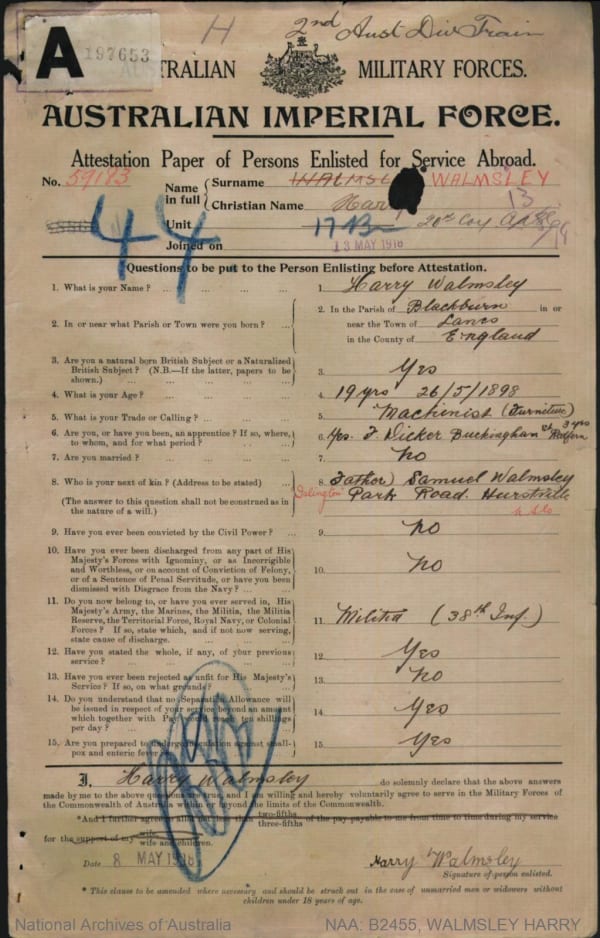 A 197653
H 2nd Aust Div Train
AUSTRALIAN MILITARY FORCES.
AUSTRALIAN IMPERIAL FORCE.
Attestation Paper of Persons Enlisted for Service Abroad.
No. 59183
Name in full
Surname WALMSL WALMSLEY
Christian Name Harry
Unit
Joined on 13 MAY 1918
44
Questions to be put to the Person Enlisting before Attestation.
1. What is your Name? ... 1. Harry Walmsley
2. In or near what Parish or Town were you born? ... 2. In the Parish of Blackburn in or
near the Town of Lancs
in the County of England
3. Are you a natural born British Subject or a Naturalized
British Subject? (N.B.—If the latter, papers to be
shown.) ... 3. Yes
4. What is your Age? ... 4. 19 yrs 26/5/1898
5. What is your Trade or Calling? ... 5. Machinist (Furniture)
6. Are you, or have you been, an apprentice? If so, where,
to whom, and for what period? ... 6. Yes. F. Dicker Buckingham St Redfern 3 yrs
7. Are you married? ... 7. No
8. Who is your next of kin? (Address to be stated) ... 8. Father) Samuel Walmsley
"Islington" Park Road. Hurstville
(The answer to this question shall not be construed as in
the nature of a will.)
9. Have you ever been convicted by the Civil Power? ... 9. No
10. Have you ever been discharged from any part of His
Majesty's Forces with Ignominy, or as Incorrigible
and Worthless, or on account of Conviction of Felony,
or of a Sentence of Penal Servitude, or have you been
dismissed with Disgrace from the Navy? ... 10. No
11. Do you now belong to, or have you ever served in, His
Majesty's Army, the Marines, the Militia, the Militia
Reserve, the Territorial Force, Royal Navy, or Colonial
Forces? If so, state which, and if not now serving,
state cause of discharge. ... 11. Militia (38th Inf.)
12. Have you stated the whole, if any, of your previous
service? ... 12. Yes
13. Have you ever been rejected as unfit for His Majesty's
Service? If so, on what grounds? ... 13. No
14. Do you understand that no Separation Allowance will
be issued in respect of your service beyond an amount
which together with Pay ten shillings
per day? ... 14. Yes
15. Are you prepared to undergo inoculation against small-
pox and enteric fever ... 15. Yes
I, Harry Walmsley do solemnly declare that the above answers
made by me to the above questions are true, and I am willing and hereby voluntarily agree to serve in the Military Forces of
the Commonwealth of Australia within or beyond the limits of the Commonwealth.
*And I further agree to allot not less than two-fifths three-fifths of the pay payable to me from time to time during my service
for the support of my wife wife and children.
Date 8 MAY 1918 Harry Walmsley
Signature of person enlisted.
* This clause to be amended where necessary and should be struck out in the case of unmarried men or widowers without
children under 18 years of age.
National Archives of Australia NAA: B2455, WALMSLEY HARRY